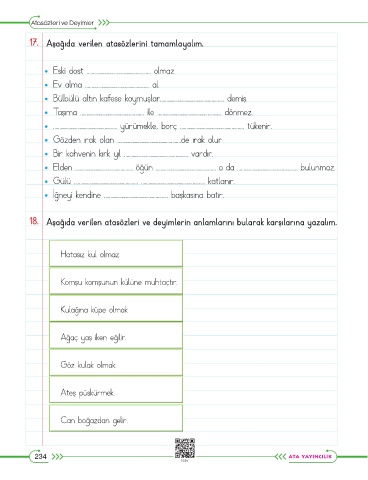 Atasözleri ve Deyimler
17. Aşağıda verilen atasözlerini tamamlayalım.
• Eski dost ........................ olmaz.
• Ev alma ........................ al.
• Bülbülü altın kafese koymuşlar........................ demiş.
• Taşıma ........................ ile ........................ dönmez.
• ........................ yürümekle, borç ........................ tükenir.
• Gözden ırak olan ........................de ırak olur.
• Bir kahvenin kırk yıl ........................ vardır.
• Elden ........................ öğün ........................ o da ........................ bulunmaz.
• Gülü ........................ ........................ katlanır.
• İğneyi kendine ........................ başkasına batır.
18. Aşağıda verilen atasözleri ve deyimlerin anlamlarını bularak karşılarına yazalım.
Hatasız kul olmaz.
Komşu komşunun külüne muhtaçtır.
Kulağına küpe olmak
Ağaç yaş iken eğilir.
Göz kulak olmak.
Ateş püskürmek.
Can boğazdan gelir.
234
ATA YAYINCILIK